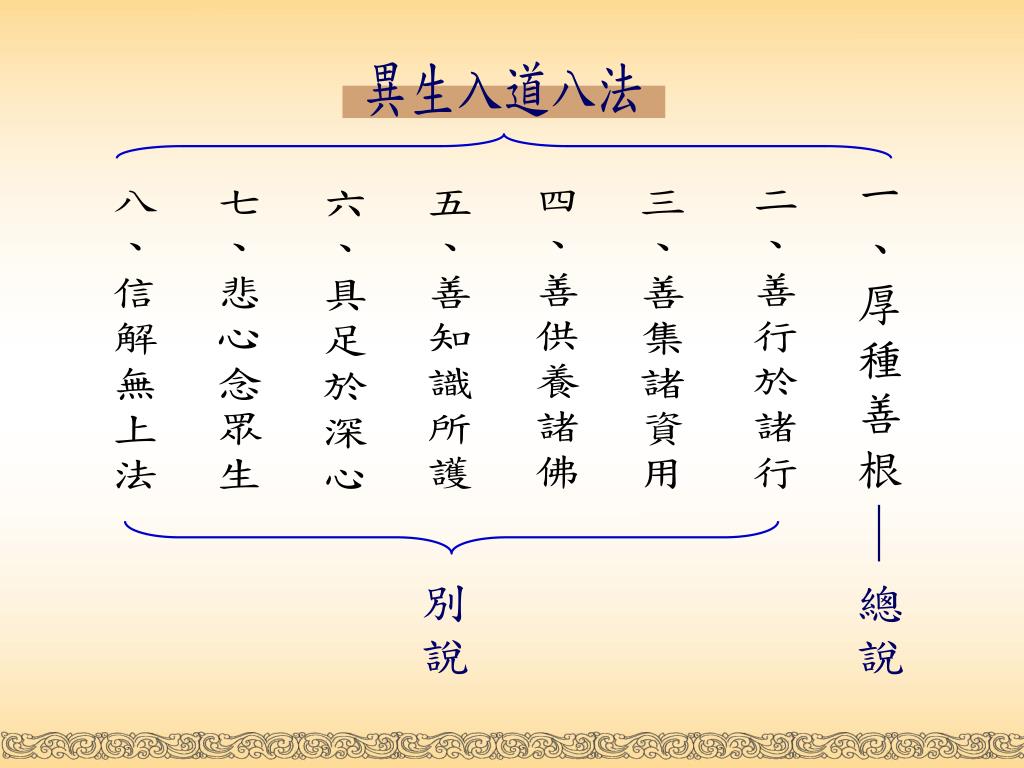 異生入道八法
一、厚種善根
二、善行於諸行
三、善集諸資用
四、善供養諸佛
五、善知識所護
六、具足於深心
七、悲心念眾生
八、信解無上法
總說
別說